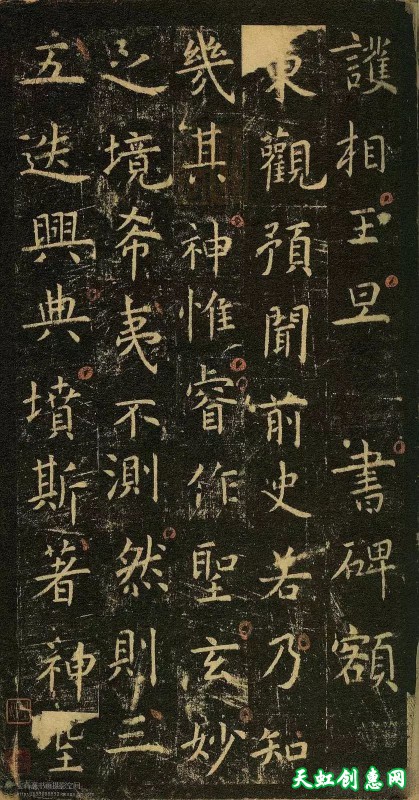 護相王旦書碑額
東觀預聞前史若乃知
幾其神惟睿作聖玄妙
之境希夷不測然則三
五迭興典墳斯著神
天虹创意网